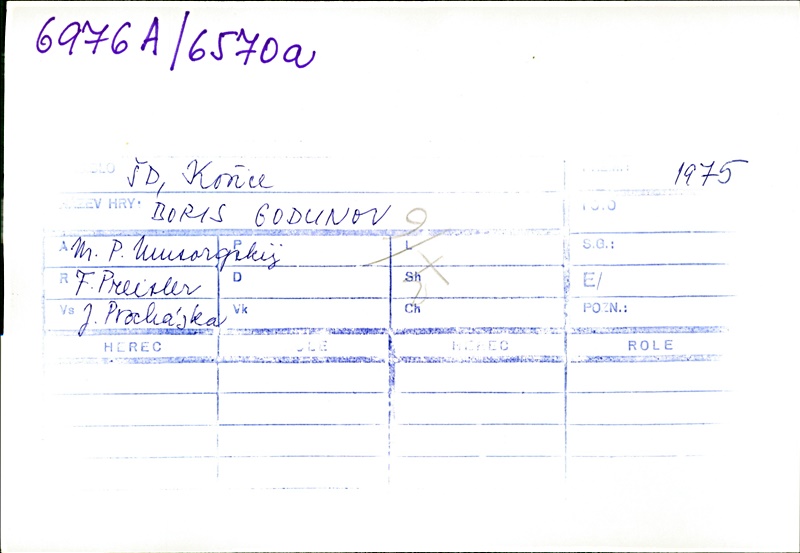 6976A/6570a
ŠD, Košice 1975
NÁZEV HRY: BORIS GODUNOV
A M. P. Musorgskij P L S.G.:
R F. Preisler D Sh E/
Vs J. Procházka Vk Ch POZN.:
HEREC ROLE HEREC ROLE